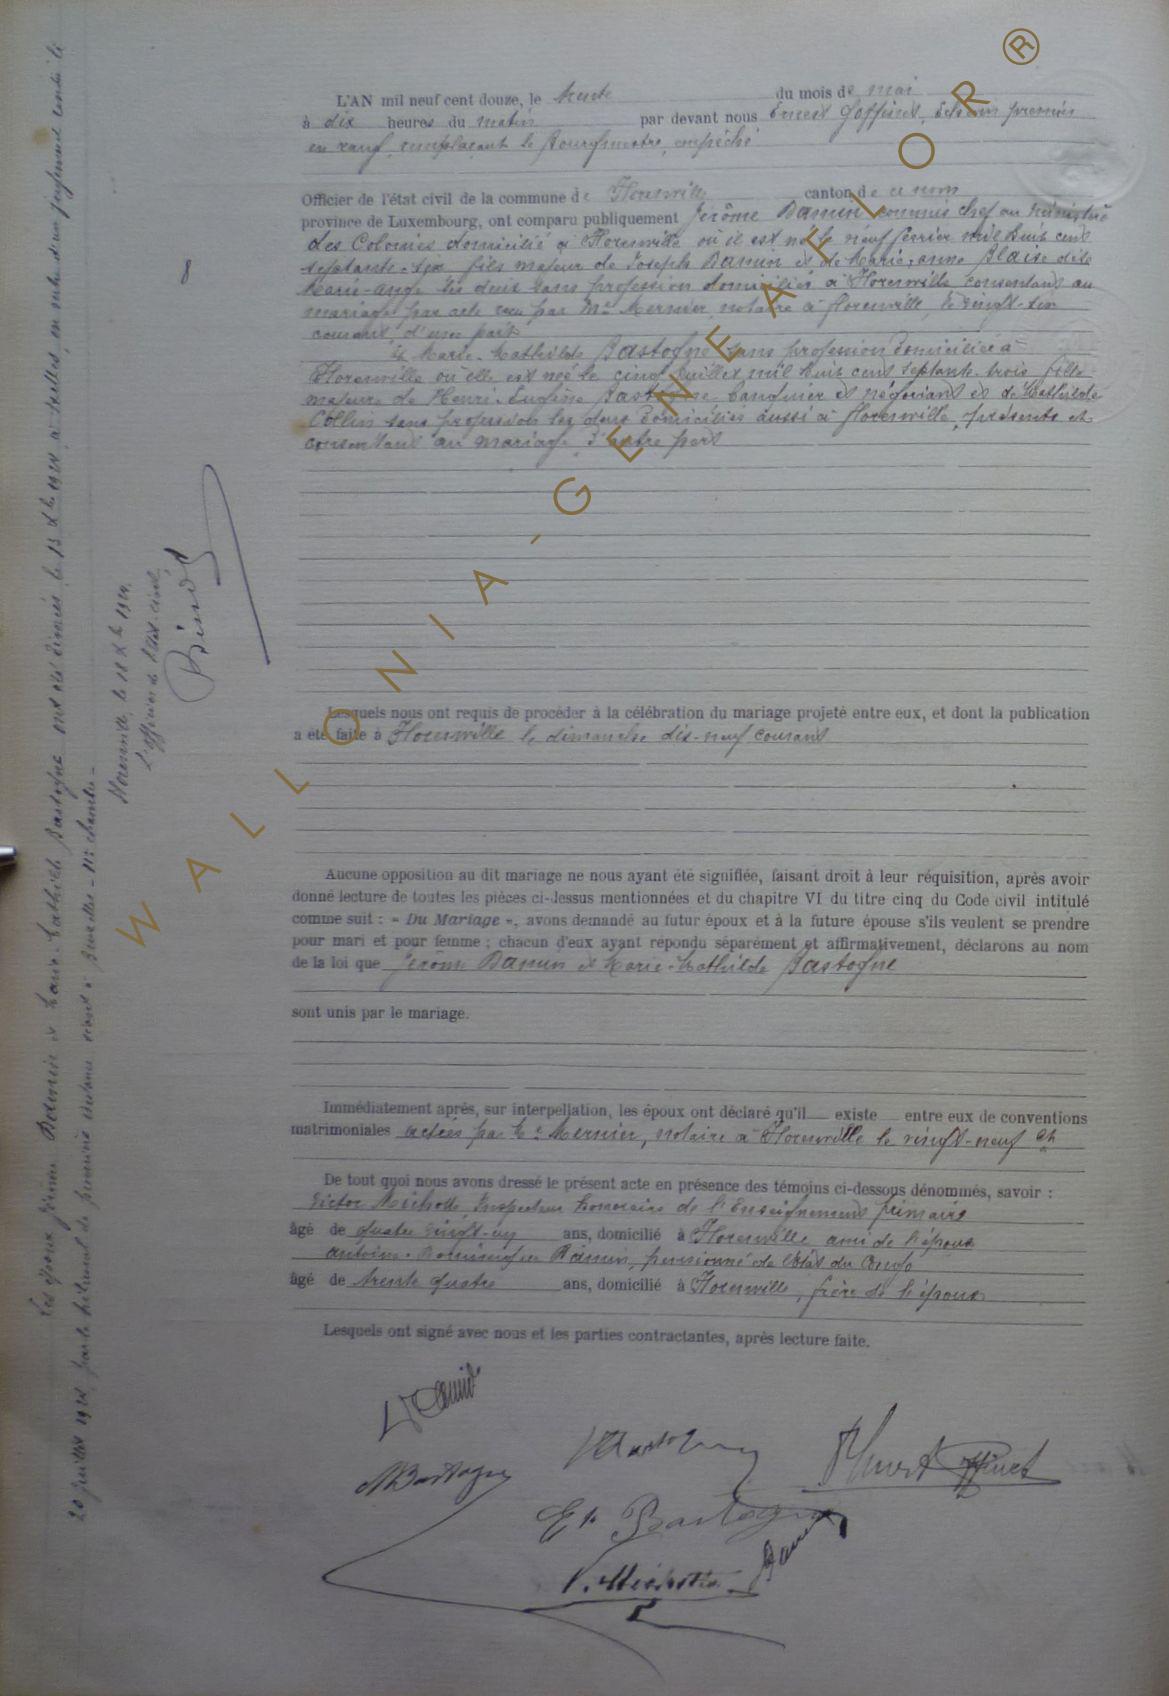 L'AN mil neuf cent douze, le trente du mois de mai
à dix heures du matin par devant nous Ernest Goffinet, Echevin premier
en rang, remplaçant le Bourgmestre, empêché
Officier de l'état civil de la commune de Florenville canton de ce nom
province de Luxembourg, ont comparu publiquement Jérôme Damin commis chef au Ministère
des Colonies domicilié à Florenville où il est né le neuf février mil huit cent
septante-six fils majeur de Joseph Damin et de Marie-anne Blaise dite
Marie-ange les deux sans profession domiciliés à Florenville consentant au
mariage par acte reçu par Me Mernier, notaire à florenville, le vingt-six
courant, d'une part
Et Marie-Mathilde Bastogne sans profession domiciliée à
Florenville où elle est née le cinq juillet mil huit cent septante-trois fille
majeure de Henri-Eugène Bastogne banquier et négociant et de Mathilde
Collin sans profession les deux domiciliés aussi à florenville, présents et
consentant au mariage, d'autre part
8
Lesquels nous ont requis de procéder à la célébration du mariage projeté entre eux, et dont la publication
a été faite à Florenville le dimanche dix-neuf courant
Aucune opposition au dit mariage ne nous ayant été signifiée, faisant droit à leur réquisition, après avoir
donné lecture de toutes les pièces ci-dessus mentionnées et du chapitre VI du titre cinq du Code civil intitulé
comme suit : « Du Mariage », avons demandé au futur époux et à la future épouse s'ils veulent se prendre
pour mari et pour femme ; chacun d'eux ayant répondu séparément et affirmativement, déclarons au nom
de la loi que Jérôme Damin et Marie-Mathilde Bastogne
sont unis par le mariage.
Immédiatement après, sur interpellation, les époux ont déclaré qu'il existe entre eux de conventions
matrimoniales actées par Me Mernier, notaire à Florenville le vingt-neuf ct
De tout quoi nous avons dressé le présent acte en présence des témoins ci-dessous dénommés, savoir :
Victor Michotte, Inspecteur honoraire de l'Enseignement primaire
âgé de quatre vingt-un ans, domicilié à Florenville ami de l'époux
antoine-Dominique Damin, pensionné de l'état du Congo
âgé de trente quatre ans, domicilié à Florenville, frère de l'époux
Lesquels ont signé avec nous et les parties contractantes, après lecture faite.
J Damin
MBastogne
Bastogne
Ernest Goffinet
Eg Bastogne
Damin
V. Michotte
Les époux Jérôme Damin & Marie-Mathilde Bastogne ont été divorcés le 13 Xbre 1924 à Ixelles, en suite d'un jugement rendu le
20 juillet 1924 par le tribunal de première instance séant à Bruxelles - chambre -
Florenville, le 18 Xbre 1924.
L'officier de l'Etat-civil,
WALLONIA-GENEAFLOR®